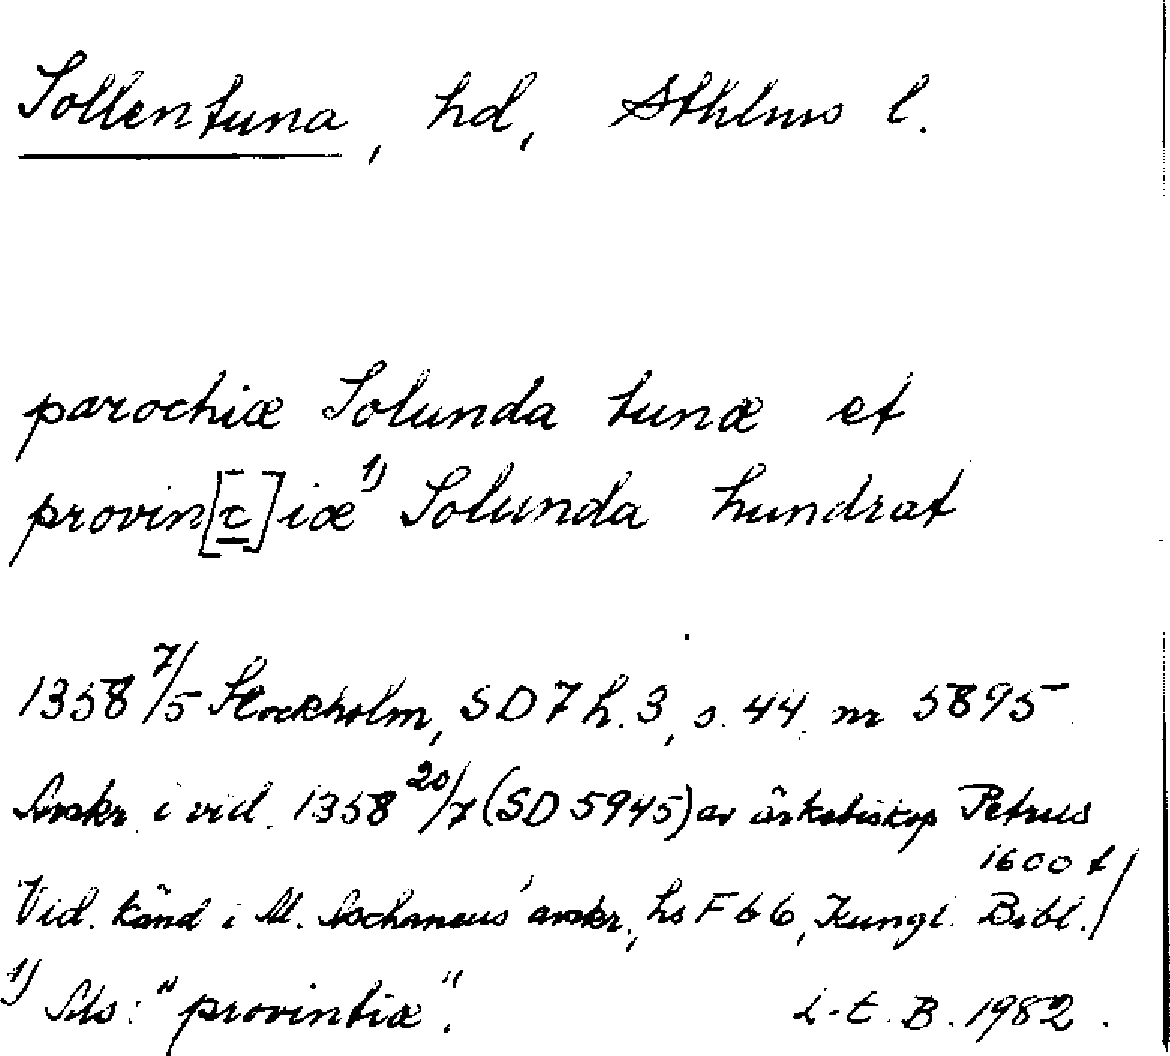 Sollentuna, hd, Sthlms l.
parochiæ Solunda tunæ et
provin[c]iæ 1) Solunda hundrat
1358 7/5 Stockholm, SD 7 h. 3, s. 44, nr 5895
Avskr. i vid. 1358 20/7 (SD 5945) av ärkebiskop Petrus
1600 t/
Vid. känd i M. Aschaneus' avskr., hs F 66, Kungl. Bibl./
1) Ms: "provintiæ".
L-E. B. 1982.